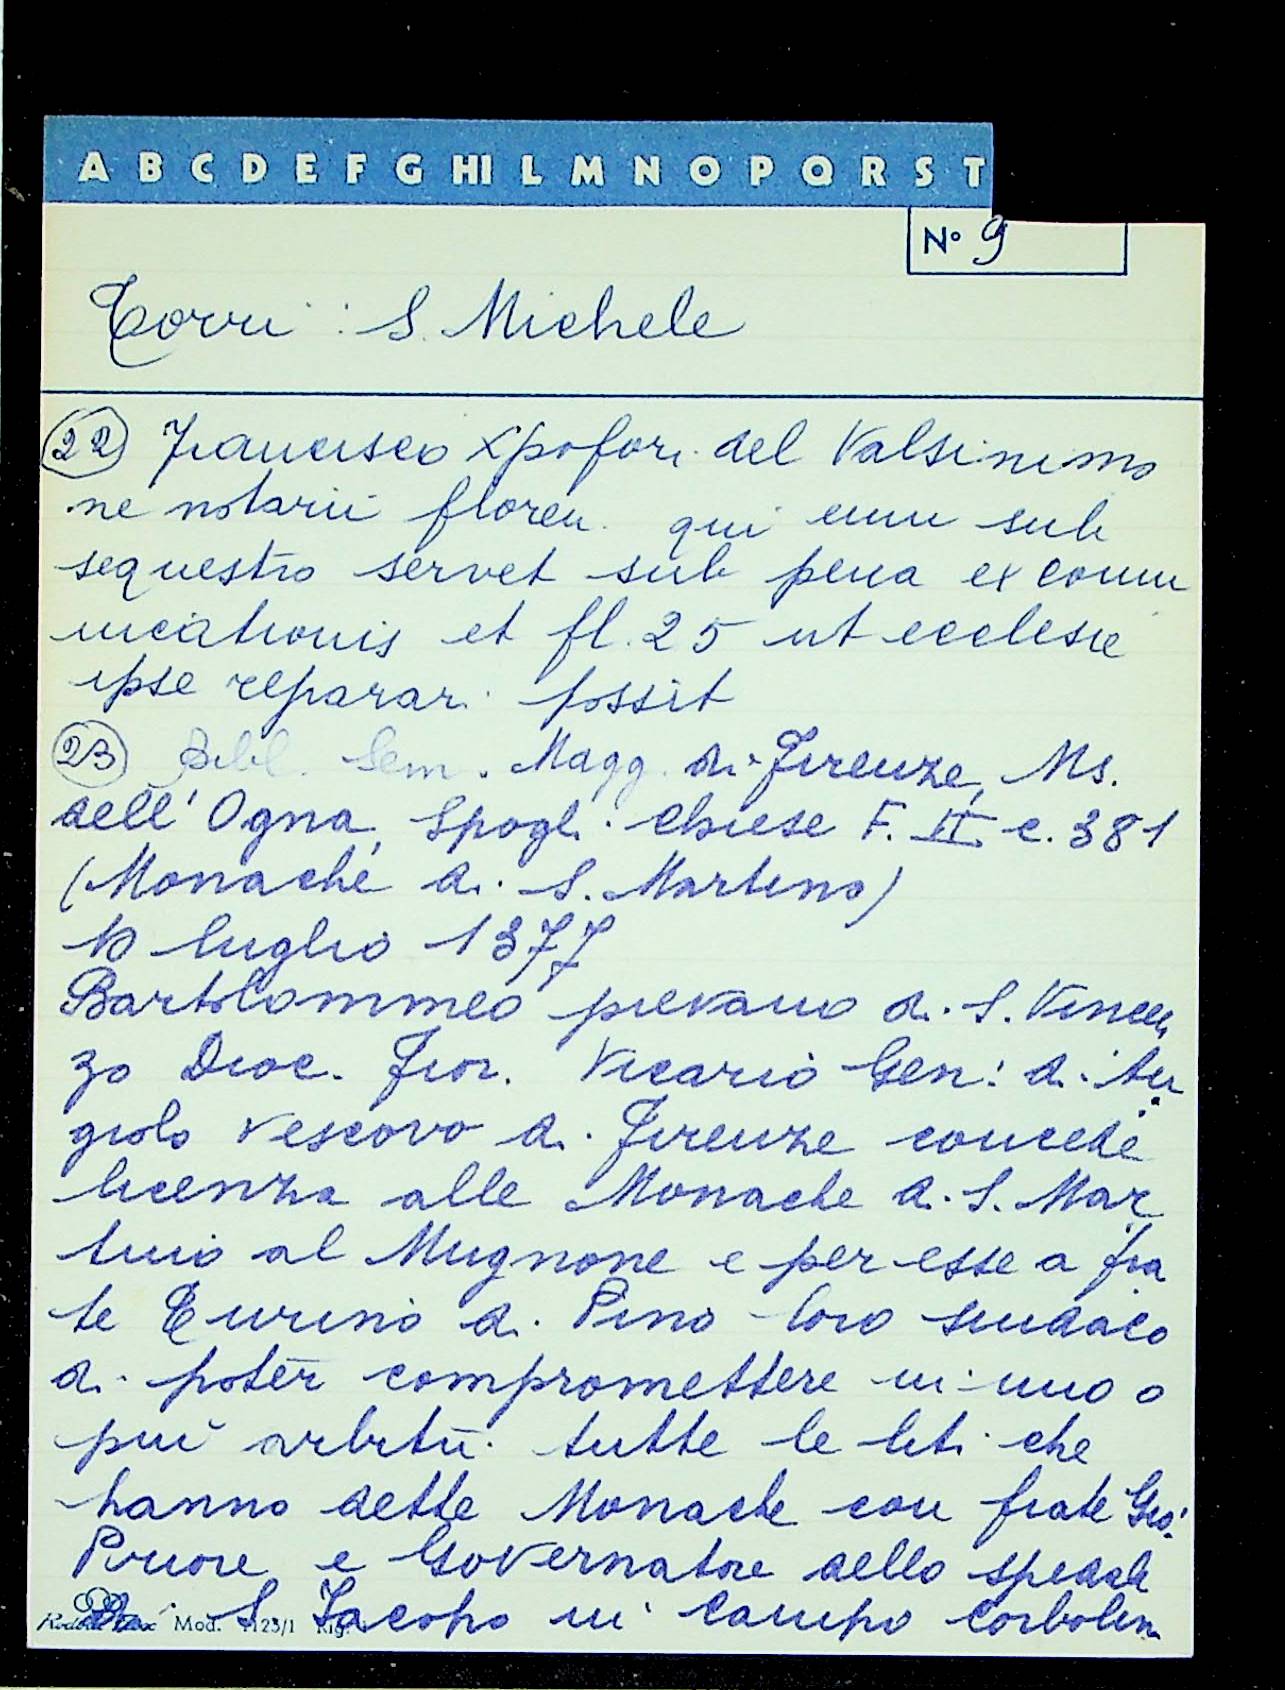 A B C D E F G HI L M N O P Q R S T
No 9
Torri : S. Michele
22 Francisco Xpofori del Valsinimo
ne notarii floren. qui eum sub
sequestro servet sub pena excomu
nicationis et fl. 25 ut ecclesie
ipse reparari possit
23 Bibl. Sem. Magg. di Firenze, Ms.
dell'Ogna, Spogli Chiese F. II c. 381
(Monache di S. Martino)
10 luglio 1377
Bartolommeo pievano di S. Vincen
zo Dioc. Fior. Vicario Gen: di An
giolo vescovo di Firenze concede
licenza alle Monache di S. Mar
tino al Mugnone e per esse a fra
te Turino di Pino loro sindaco
di poter compromettere in uno o
più arbitri tutte le liti che
hanno dette Monache con frate Gio.
Priore e Governatore dello spedale
di S. Jacopo in Campo Corbolini
Mod. 1123/1